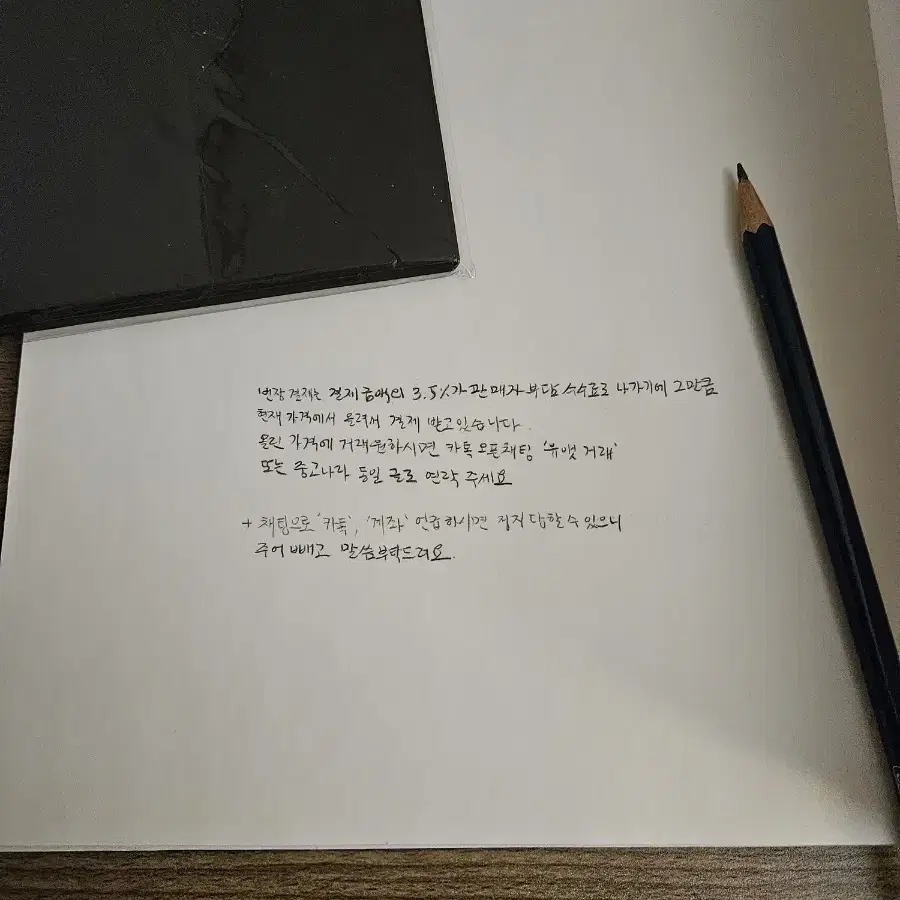 번장 결제는 결제 금액의 3.5%가 판매자 부담 수수료로 나가기에 그만큼
현재 가격에서 올려서 결제 받고있습니다.
올린 가격에 거래원하시면 카톡 오픈채팅 '뮤뱃 거래'
또는 중고나라 동일 글로 연락 주세요
+ 채팅으로 '카톡', '계좌' 언급하시면 정지 당할 수 있으니
주어 빼고 말씀부탁드려요.